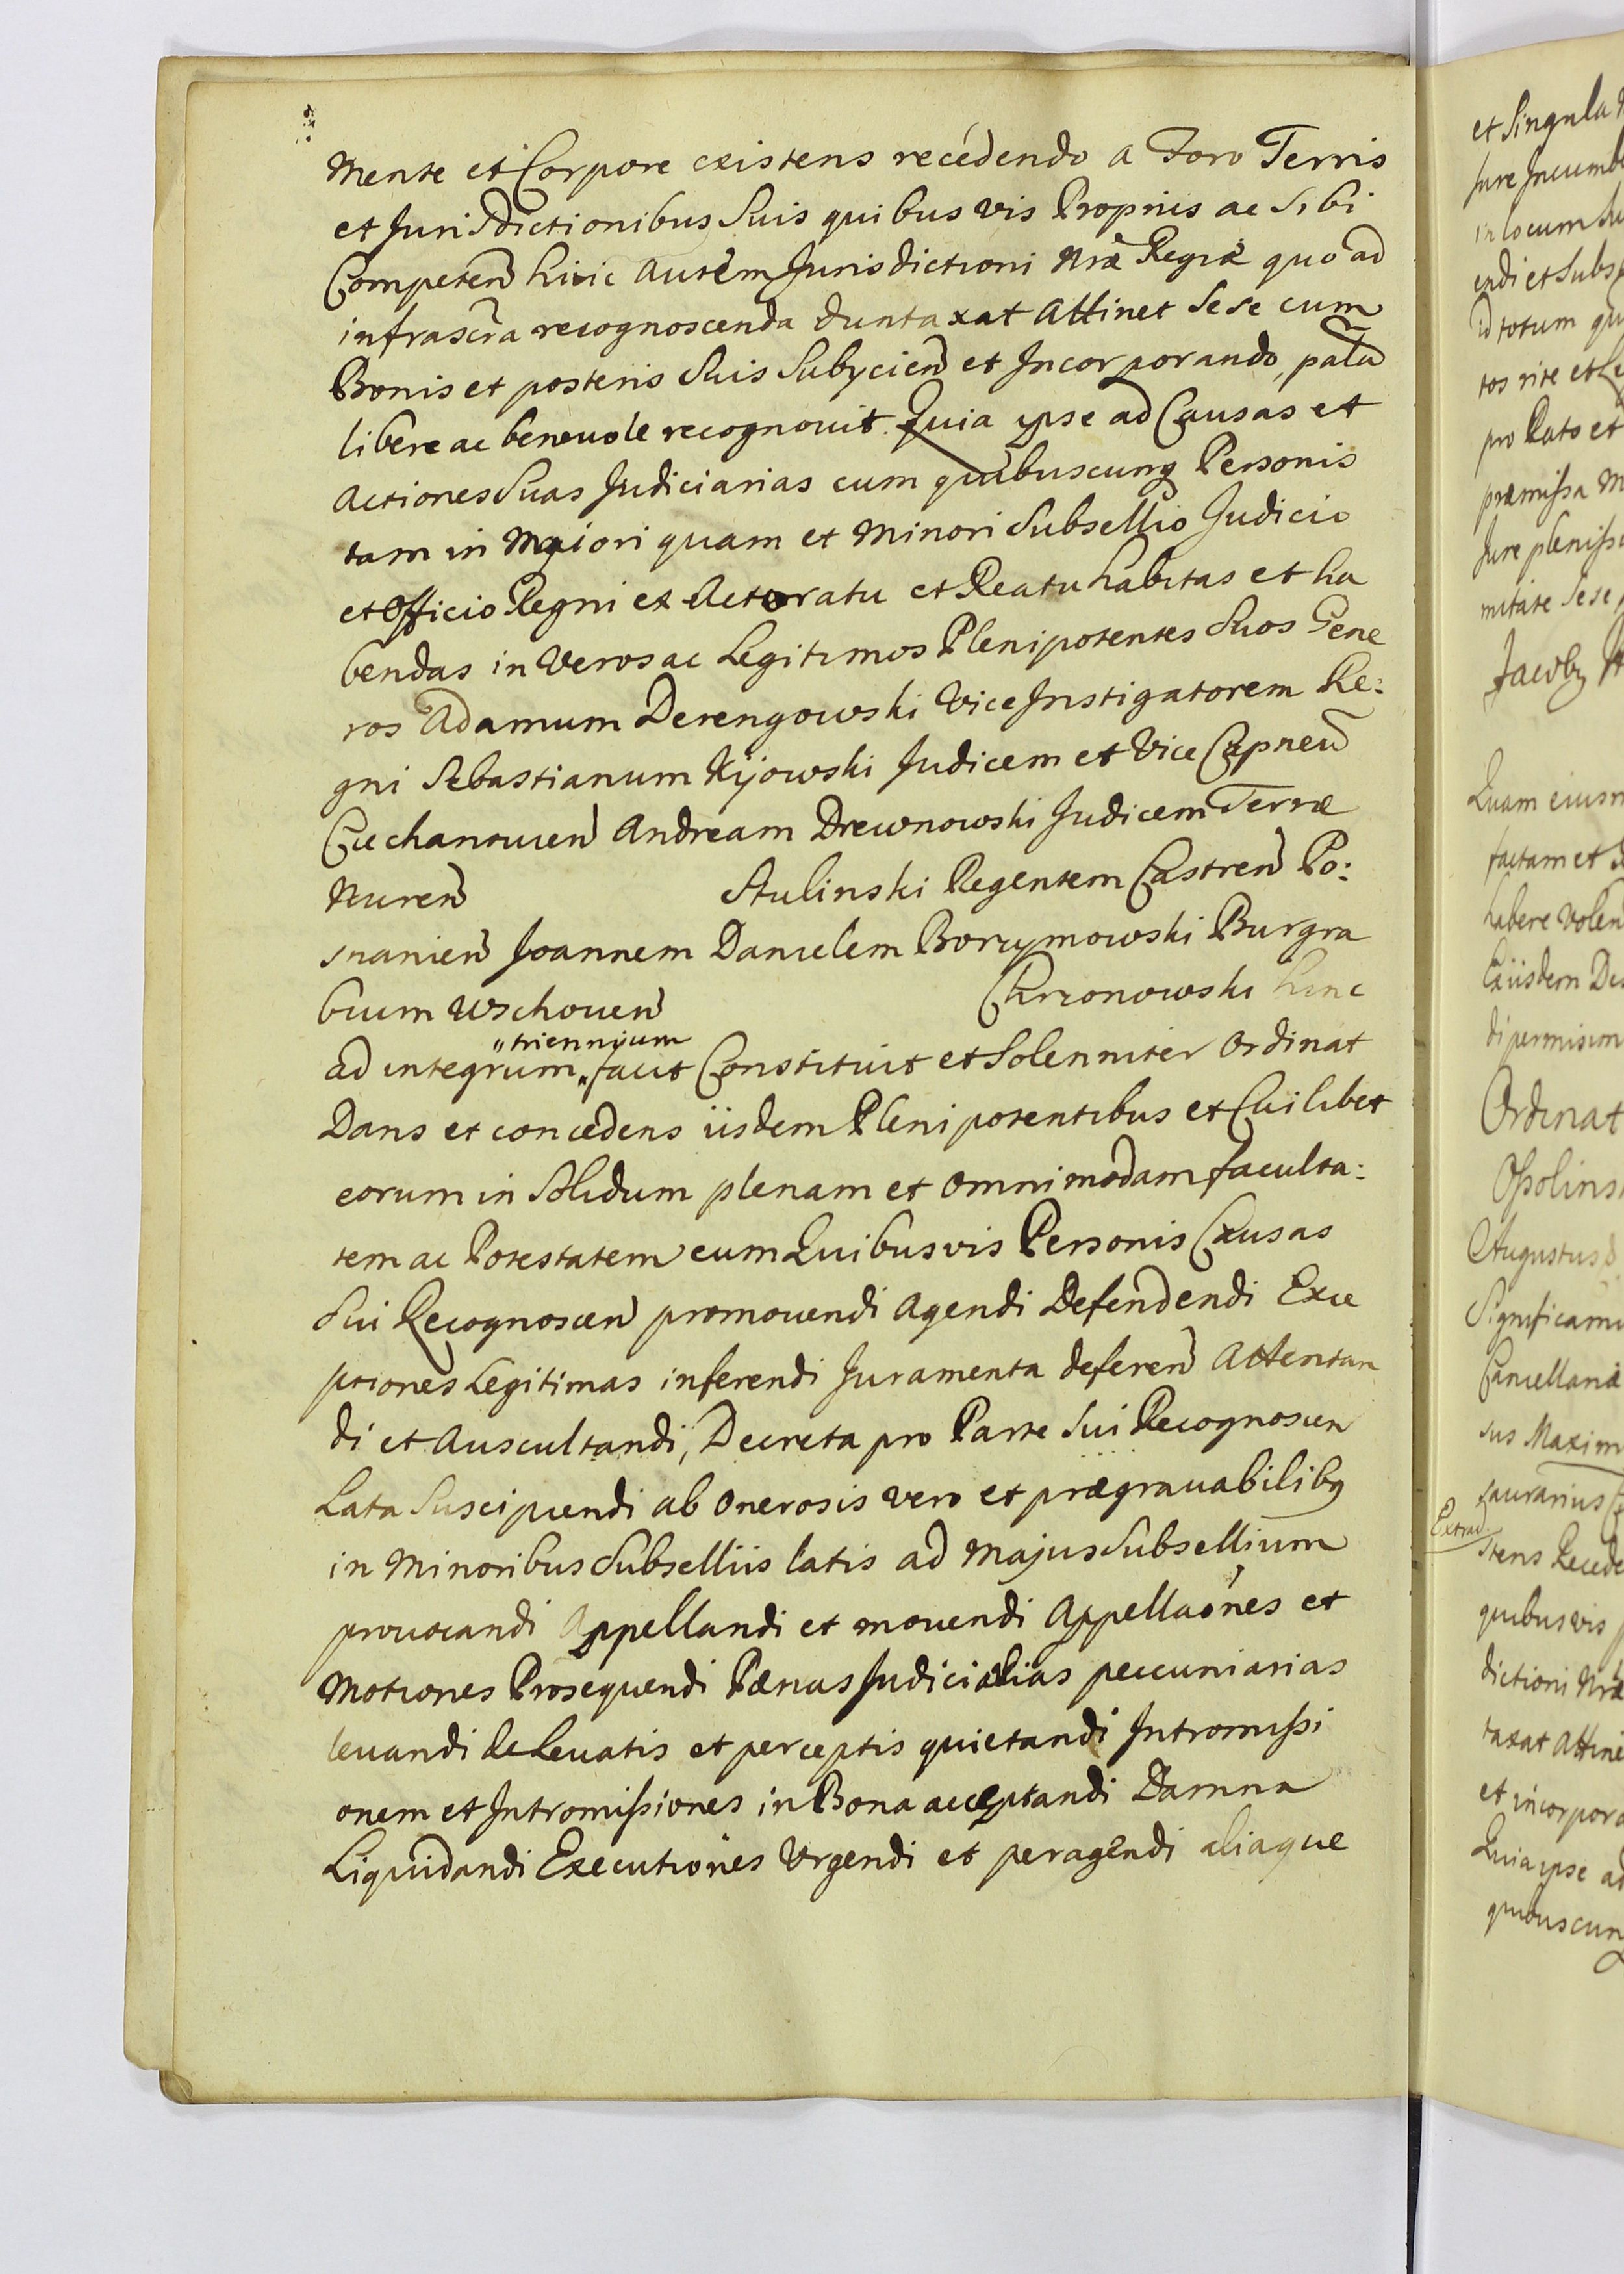 Mente et Corpore existens recedendo a Foro Terris
et Jurisdictionibus Suis quibus vis Proprijs ac Sibi
Competen̄ huic autem Jurisdictioni Nr̄æ Regiæ quo ad
infrascr̄a recognoscenda duntaxat Attinet Sese cum
Bonis et posteris Suis Subycien̄ et Incorporando, palā
libere ac beneuole recognouit. Quia ipse ad Causas et
Actiones Suas Judiciarias cum quibuscunq Personis
tam in Maiori quam et Minori Subsellio Judicio
et Officio Regni ex Actoratu et Reatu habitas et ha
bendas in Veros ac Legitimos Plenipotentes Suos Gene
ros Adamum Derengowski Vice Instigatorem Re:
gni Sebastianum Kijowski Judicem et Vice Capneū
Ciechanouien̄ Andream Drewnowski Judicem Terræ
Nuren̄ Stulinski Regentem Castren̄ Po:
snanien̄ Joannem Danielem Borzymowski Burgra
bium Wschouen̄ Chrzonowski hinc
"triennium
ad integrum "facit Constituit et Solenniter Ordinat
Dans et concedens iisdem Plenipotentibus et Cuilibet
eorum in Solidum plenam et omnimodam faculta:
tem ac Potestatem cum Quibusvis Personis Causas
Sui Recognoscen̄ promouendi Agendi Defendendi Exce
ptiones Legitimas inferendi Juramenta deferen̄ Attentan
di et Auscultandi, Decreta pro Parte Sui Recognoscen
Lata Suscipiendi ab Onerosis vero et prægrauabilibq
in Minoribus Subselliis latis ad Majus Subsellium
prouocandi Appellandi et mouendi Appellaōnes et
Motiones Prosequendi Pænas Judicialias peccuniarias
leuandi de Leuatis et perceptis quietandi Intromissi
onem et Intromissiones in Bona acceptandi Damna
Liquidandi Executiones Vrgendi et peragendi aliaque
et Singula
Jure Incumb
in locum Su
endi et Subs
id totum qu
tos rite et Le
pro Rato et
præmissa M
Jure plenissi
mitate Sese
Jacobq
Quam eiusm
factam et
habere Volen
Eiisdem De
di permisim
Ordinat
Ossolins
Augustus
Significamu
Cancellariæ
sus Maxim
saurarius
Extrad
stens Recede
quibus vis
dictioni Nr̄æ
taxat Attine
et incorpora
Quia ipse ad
quibuscun